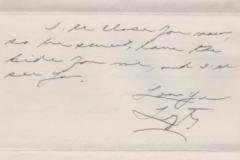 I'll close for now,
so be sweet, save the
kids for me, and I'll
see ya.
Love Ya